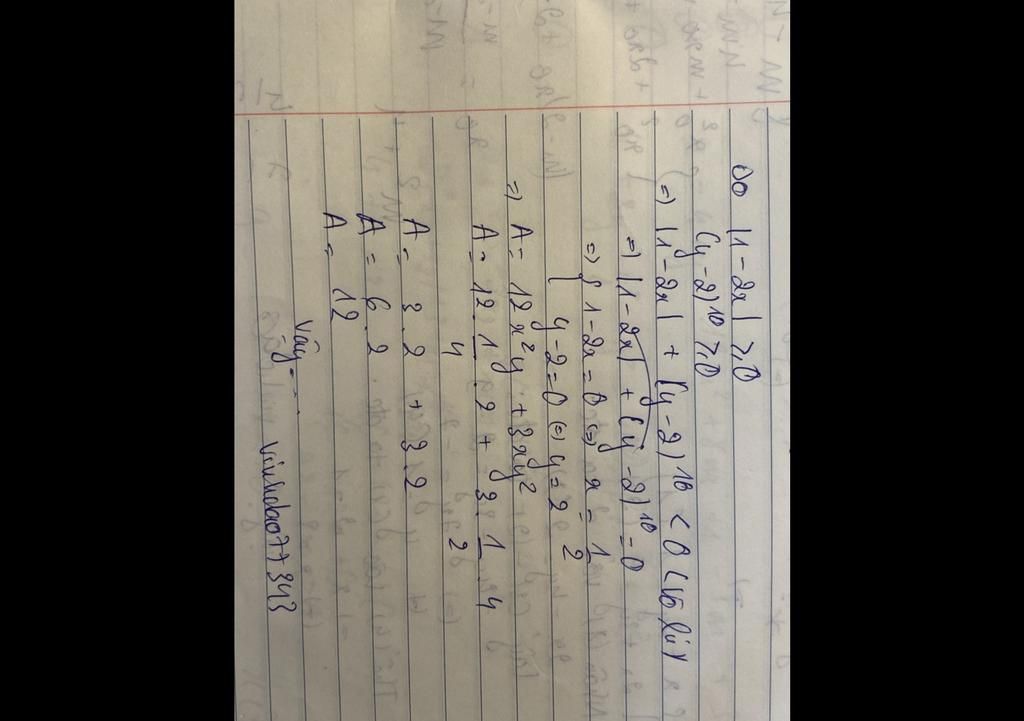 Do |1-2x| ≥ 0
(y-2)¹⁰ ≥ 0
=) |1-2x| + (y-2)¹⁰ < 0 (vô lí)
=) |1-2x| + (y-2)¹⁰ = 0
=) { 1-2x=0 (=) x = 1/2
y-2=0 (=) y=2
=) A = 12x²y + 3xy²
A = 12. 1/4 .2 + 3. 1/2 .4
A = 3.2 + 3.2
A = 6.2
A = 12
Vậy ...
vinhdao77343